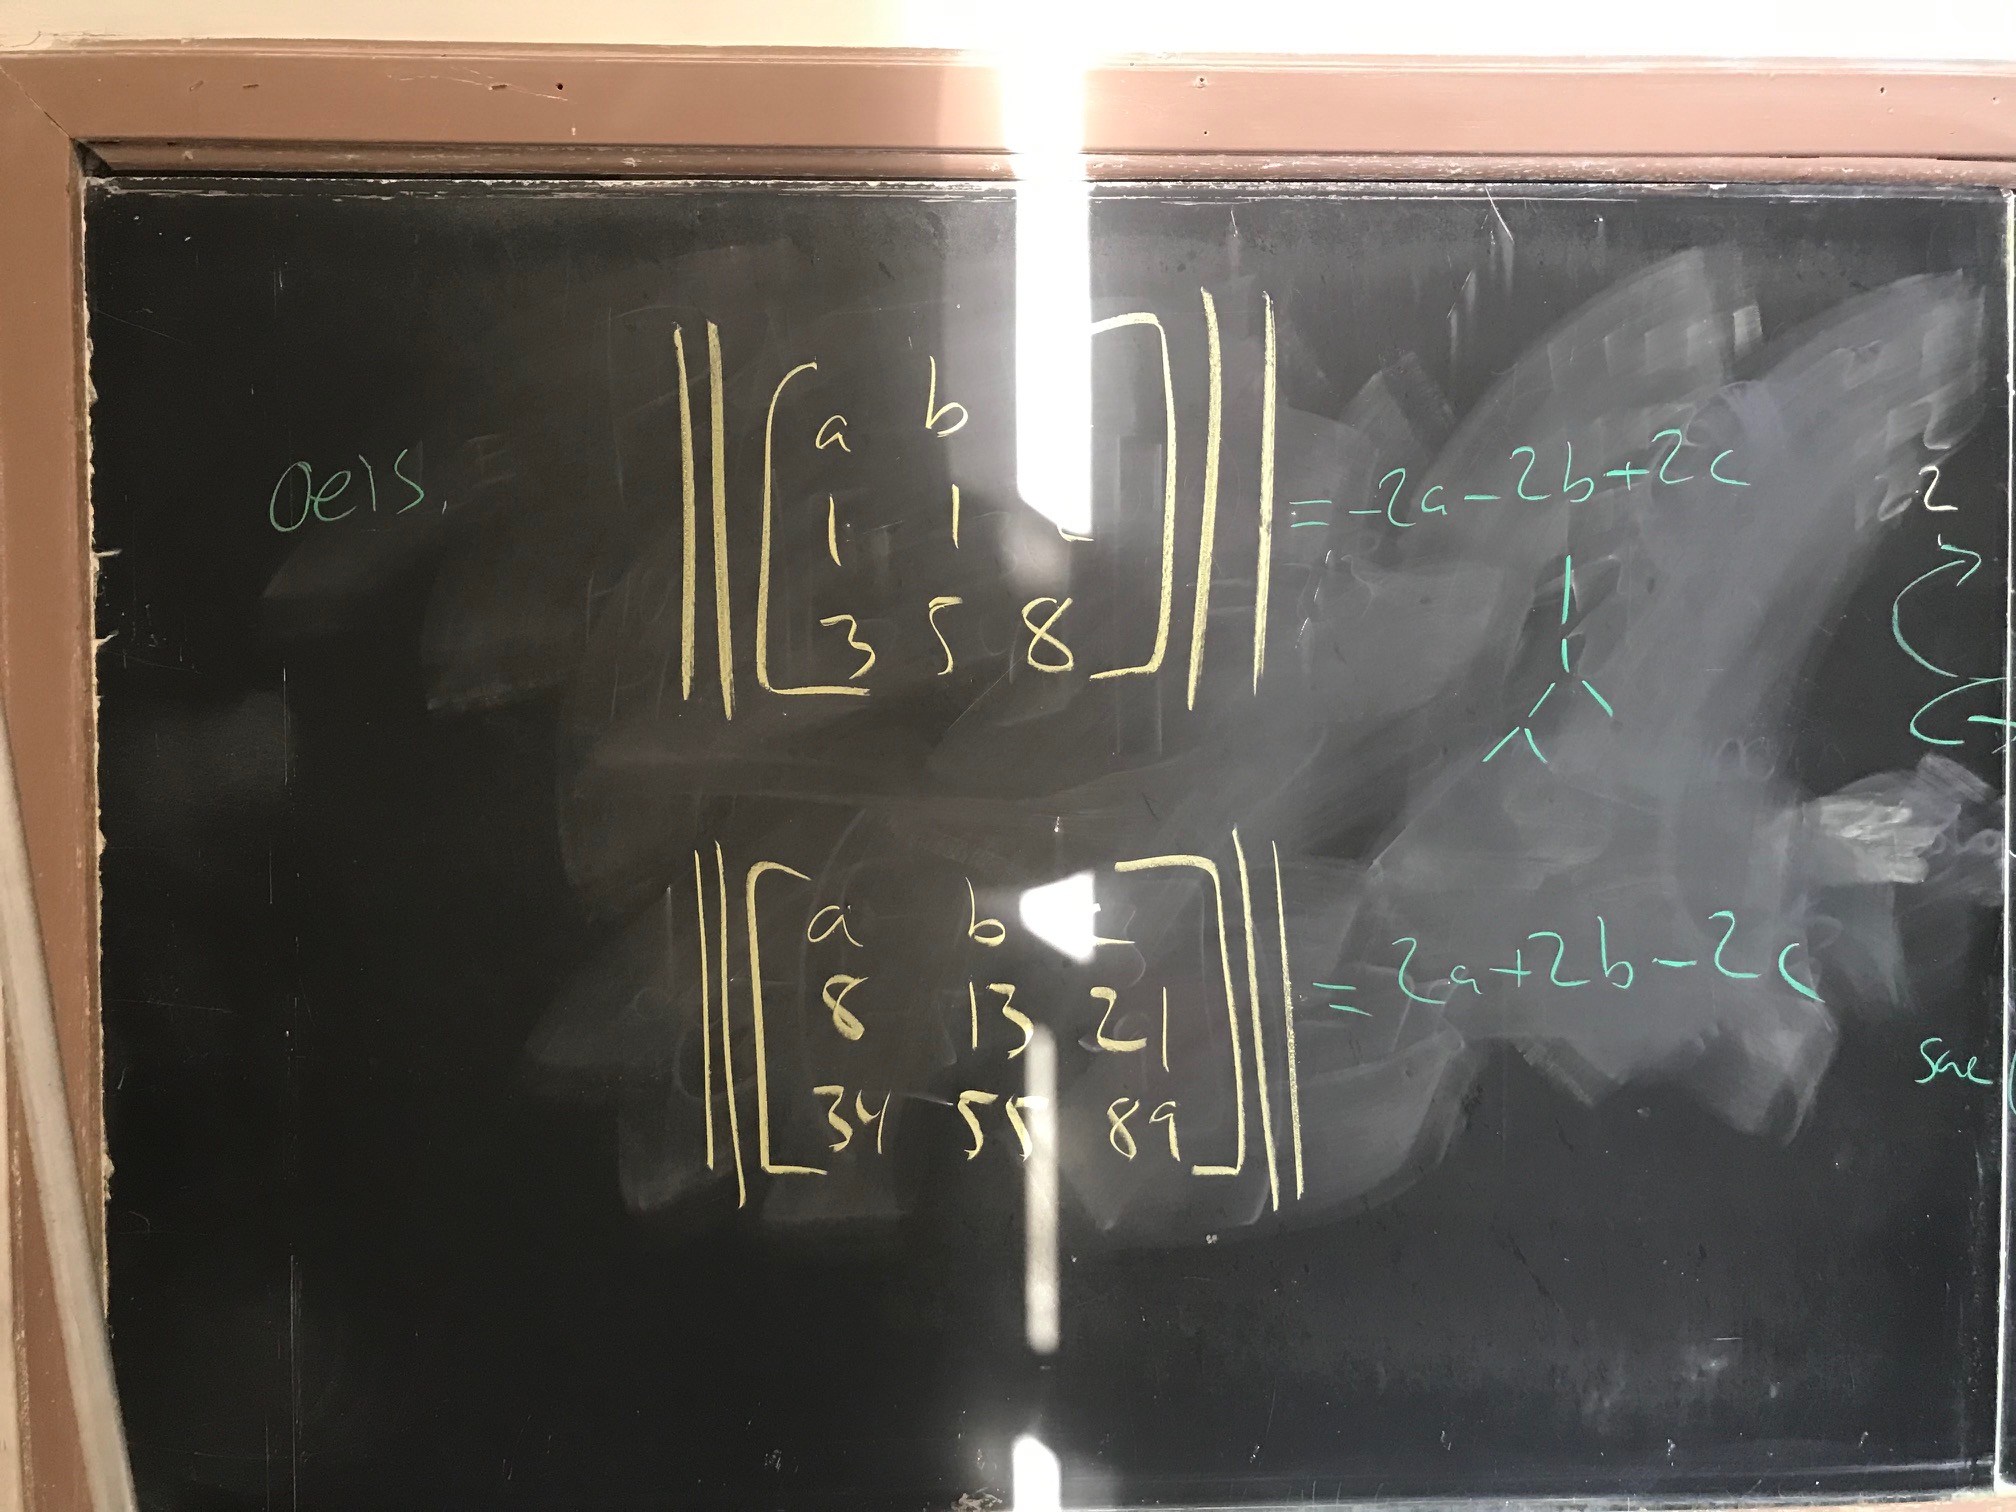 oeis.
a b
1 1
3 5 8
= -2a - 2b + 2c
2
a b c
8 13 21
34 55 89
= 2a + 2b - 2c